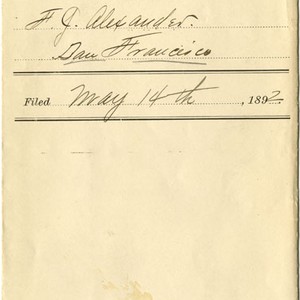 F. J. Alexander.
San Francisco
Filed May 14th, 1892.